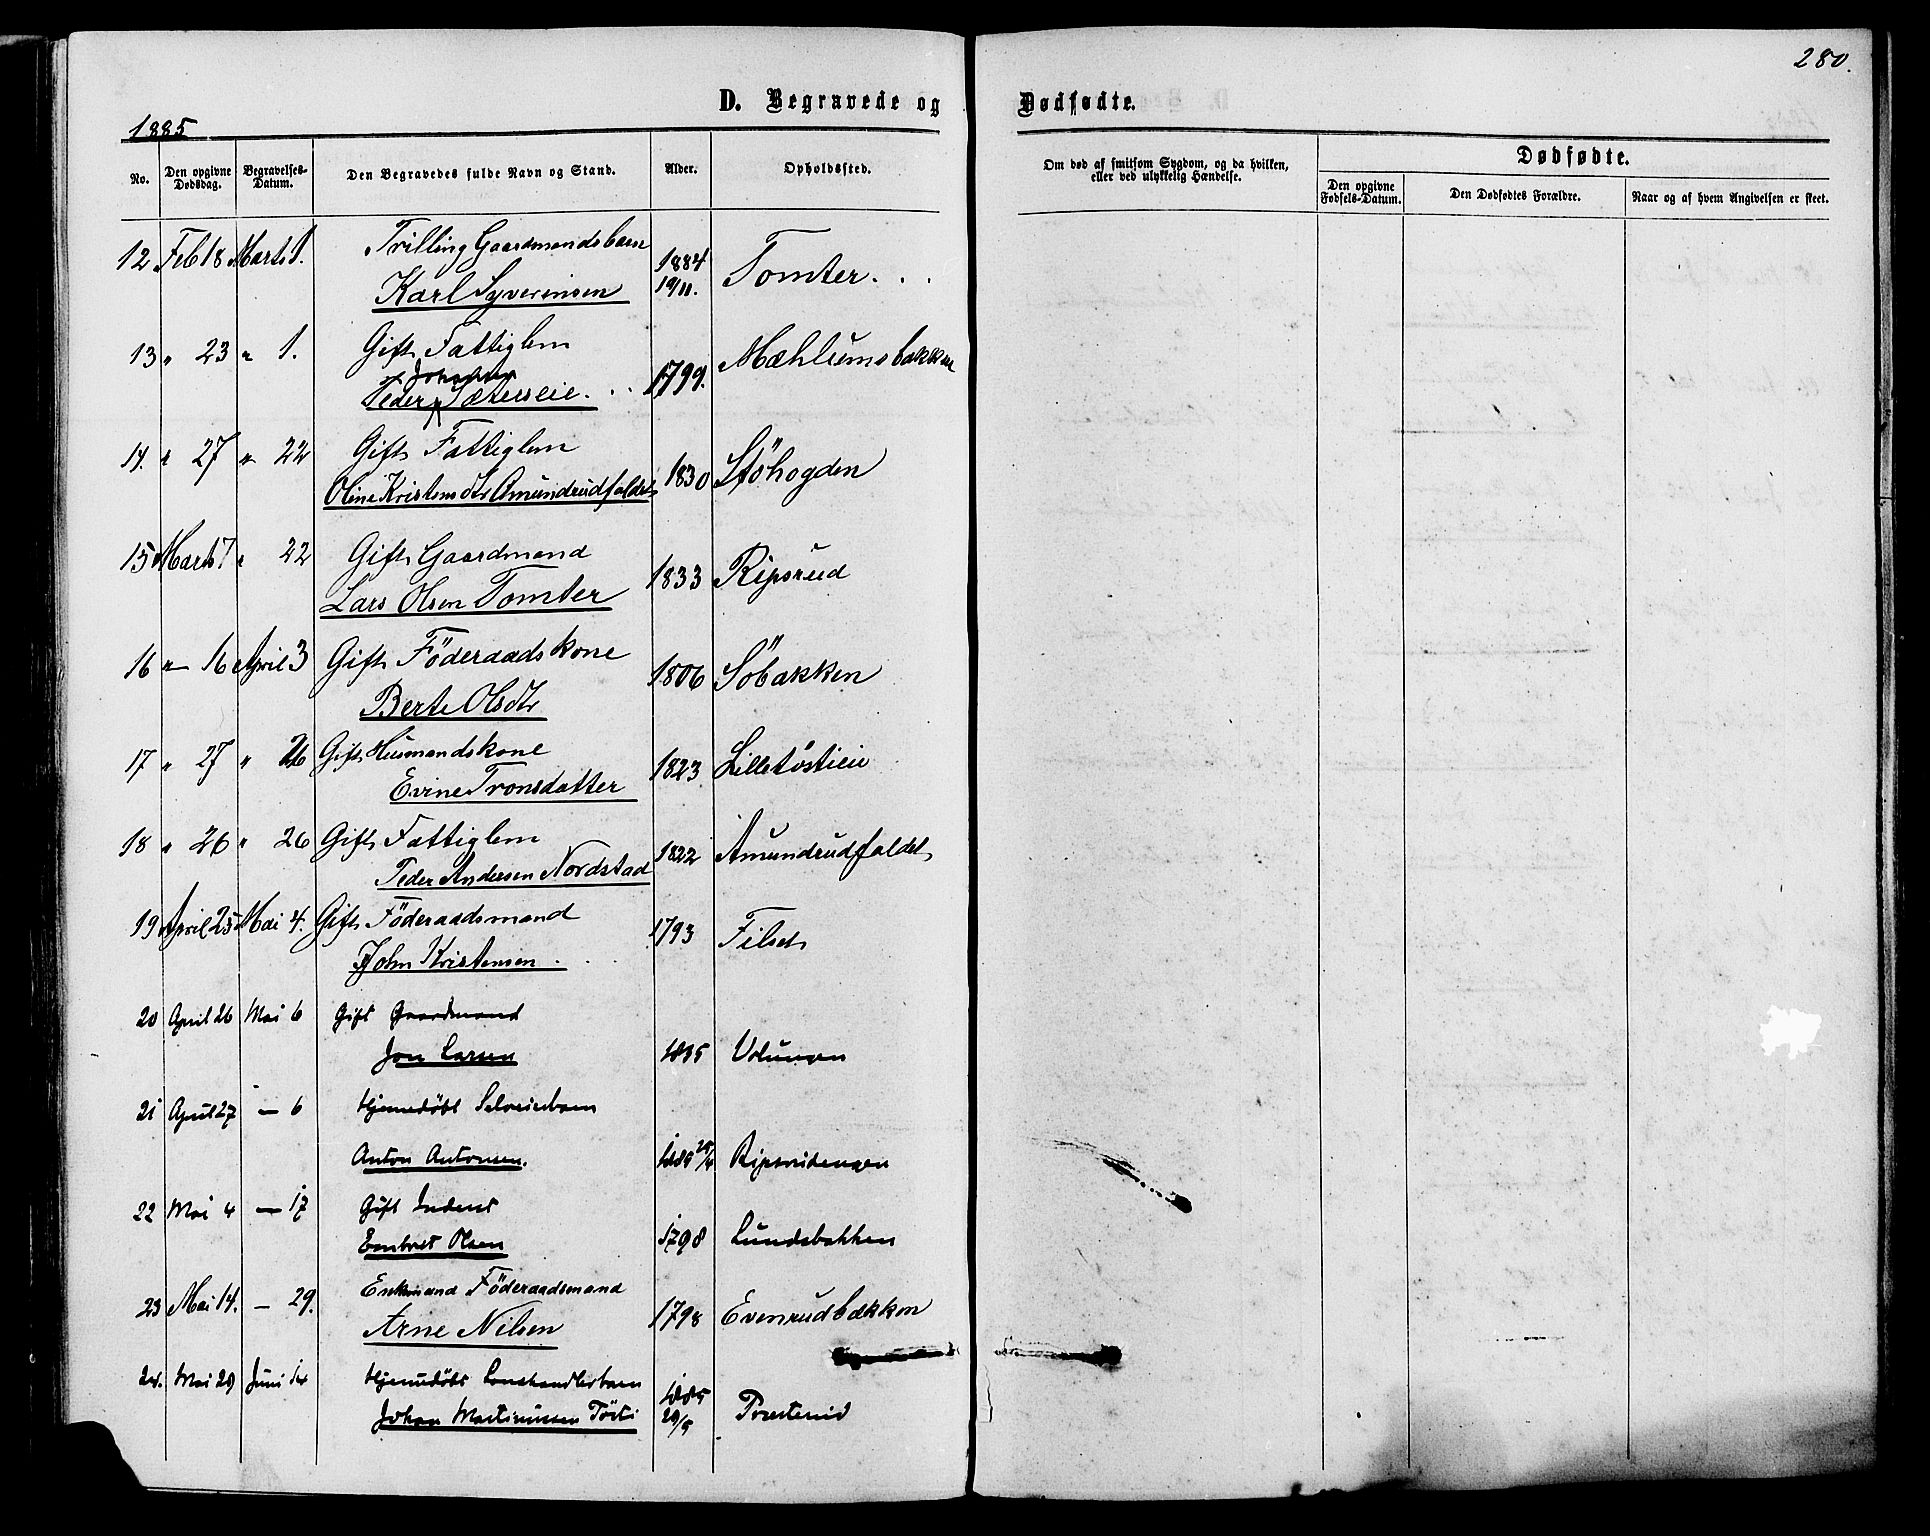 280.
D. Begravede og Dødfødte.
1885
No. Den opgivne Dødsdag. Begravelses-Datum. Den Begravedes fulde Navn og Stand. Alder. Opholdssted. Om død af smitsom Sygdom, og da hvilken, eller ved ulykkelig Hændelse. Dødfødte.
Den opgivne Fødsels-Datum. Den Dødfødtes Forældre. Naar og af hvem Angivelsen er skeet.
12 Feb 18 Marts 1. Trilling Gaardmandsbarn 1884 Tomter . .
Karl Syverinsen 19/11.
13 " 23 " 1. Gift Fattiglem 1799. Mæhlumsbakken
Johansen
Peder Sætereie . .
14. " 27 " 22 Gift Fattiglem 1830 Støhogden
Oline Kristensdtr Amundrudfaldet
15 Marts 7 " 22 Gift Gaardmand 1833 Ripsrud
Lars Olsen Tomter
16 " 16 April 3 Gift Föderaadskone 1806 Söbakken
Berte Olsdtr
17 " 27 " 26 Gift Husmandskone 1823 Lilletøstieie
Evine Tronsdatter
18 " 26 " 26 Gift Fattiglem 1822 Amundrudfaldet
Peder Andersen Nordstad
19 April 25 Mai 4. Gift Föderaadsmand 1793 Filset
John Kristensen . .
20 April 26 Mai 6 Gift Gaardmand
Jon Larsen 1835
21 April 27 — 6 Hjemmedøbt Selveierbarn
Anton Antonsen. 1885 25/4 Ripsrudengen
22 Mai 4 — 17 Gift Inderst
Embret Olsen 1798 Lundsbakken
23 Mai 14. — 29. Enkemand Föderaadsmand 1798 Evenrudbakken
Arne Nilsen
24. Mai 29 Juni 14 Hjemmedøbt Landhandlerbarn 1885
Johan Martinussen Tösti 29/5 Presterud